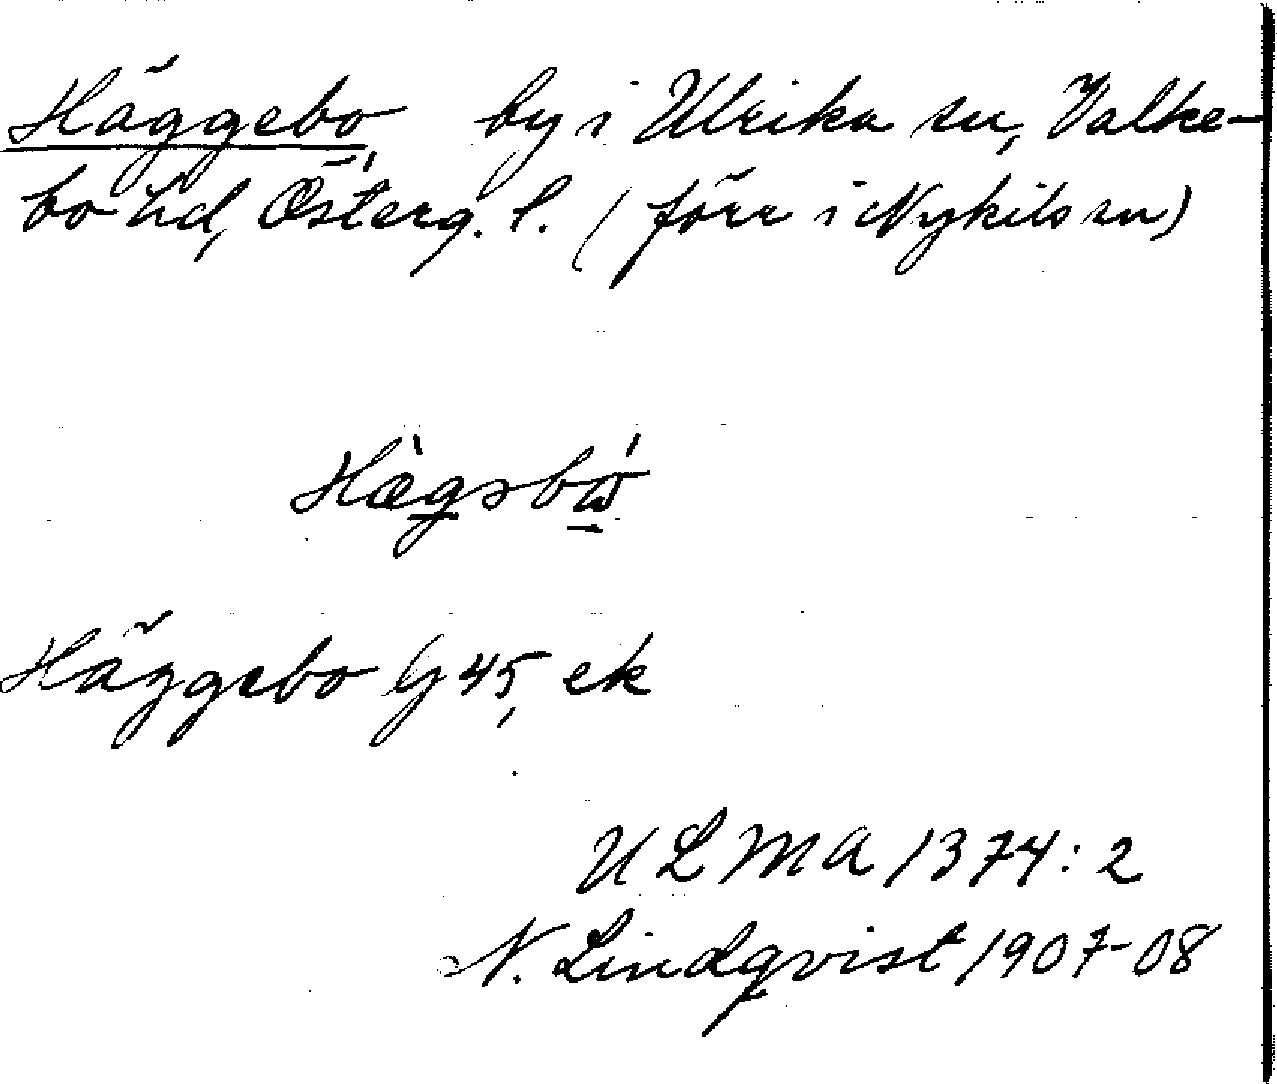 Häggebo by i Ulrika sn, Valke-
bo hd, Österg. l. (förr i Nykils sn)
Hæ̀gsbώ
Häggebo G 45, ek
ULMA 1374:2
N. Lindqvist 1907-08